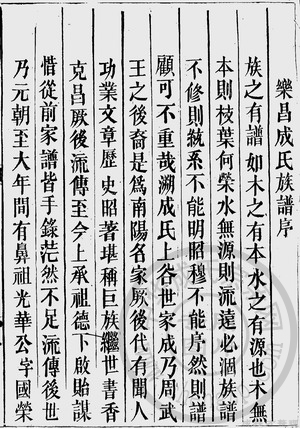 樂昌成氏族譜序
族之有譜如木之有本水之有源也木無
本則枝葉何榮水無源則流遠必涸族譜
不修則統系不能明昭穆不能序然則譜
顧可不重哉溯成氏上谷世家成乃周武
王之後裔是為南陽名家厥後代有聞人
功業文章歷史昭著堪稱巨族繼世書香
克昌厥後流傳至今上承祖德下啟貽謀
惜從前家譜皆手錄茫然不足流傳後世
乃元朝至大年間有鼻祖光華公字國榮